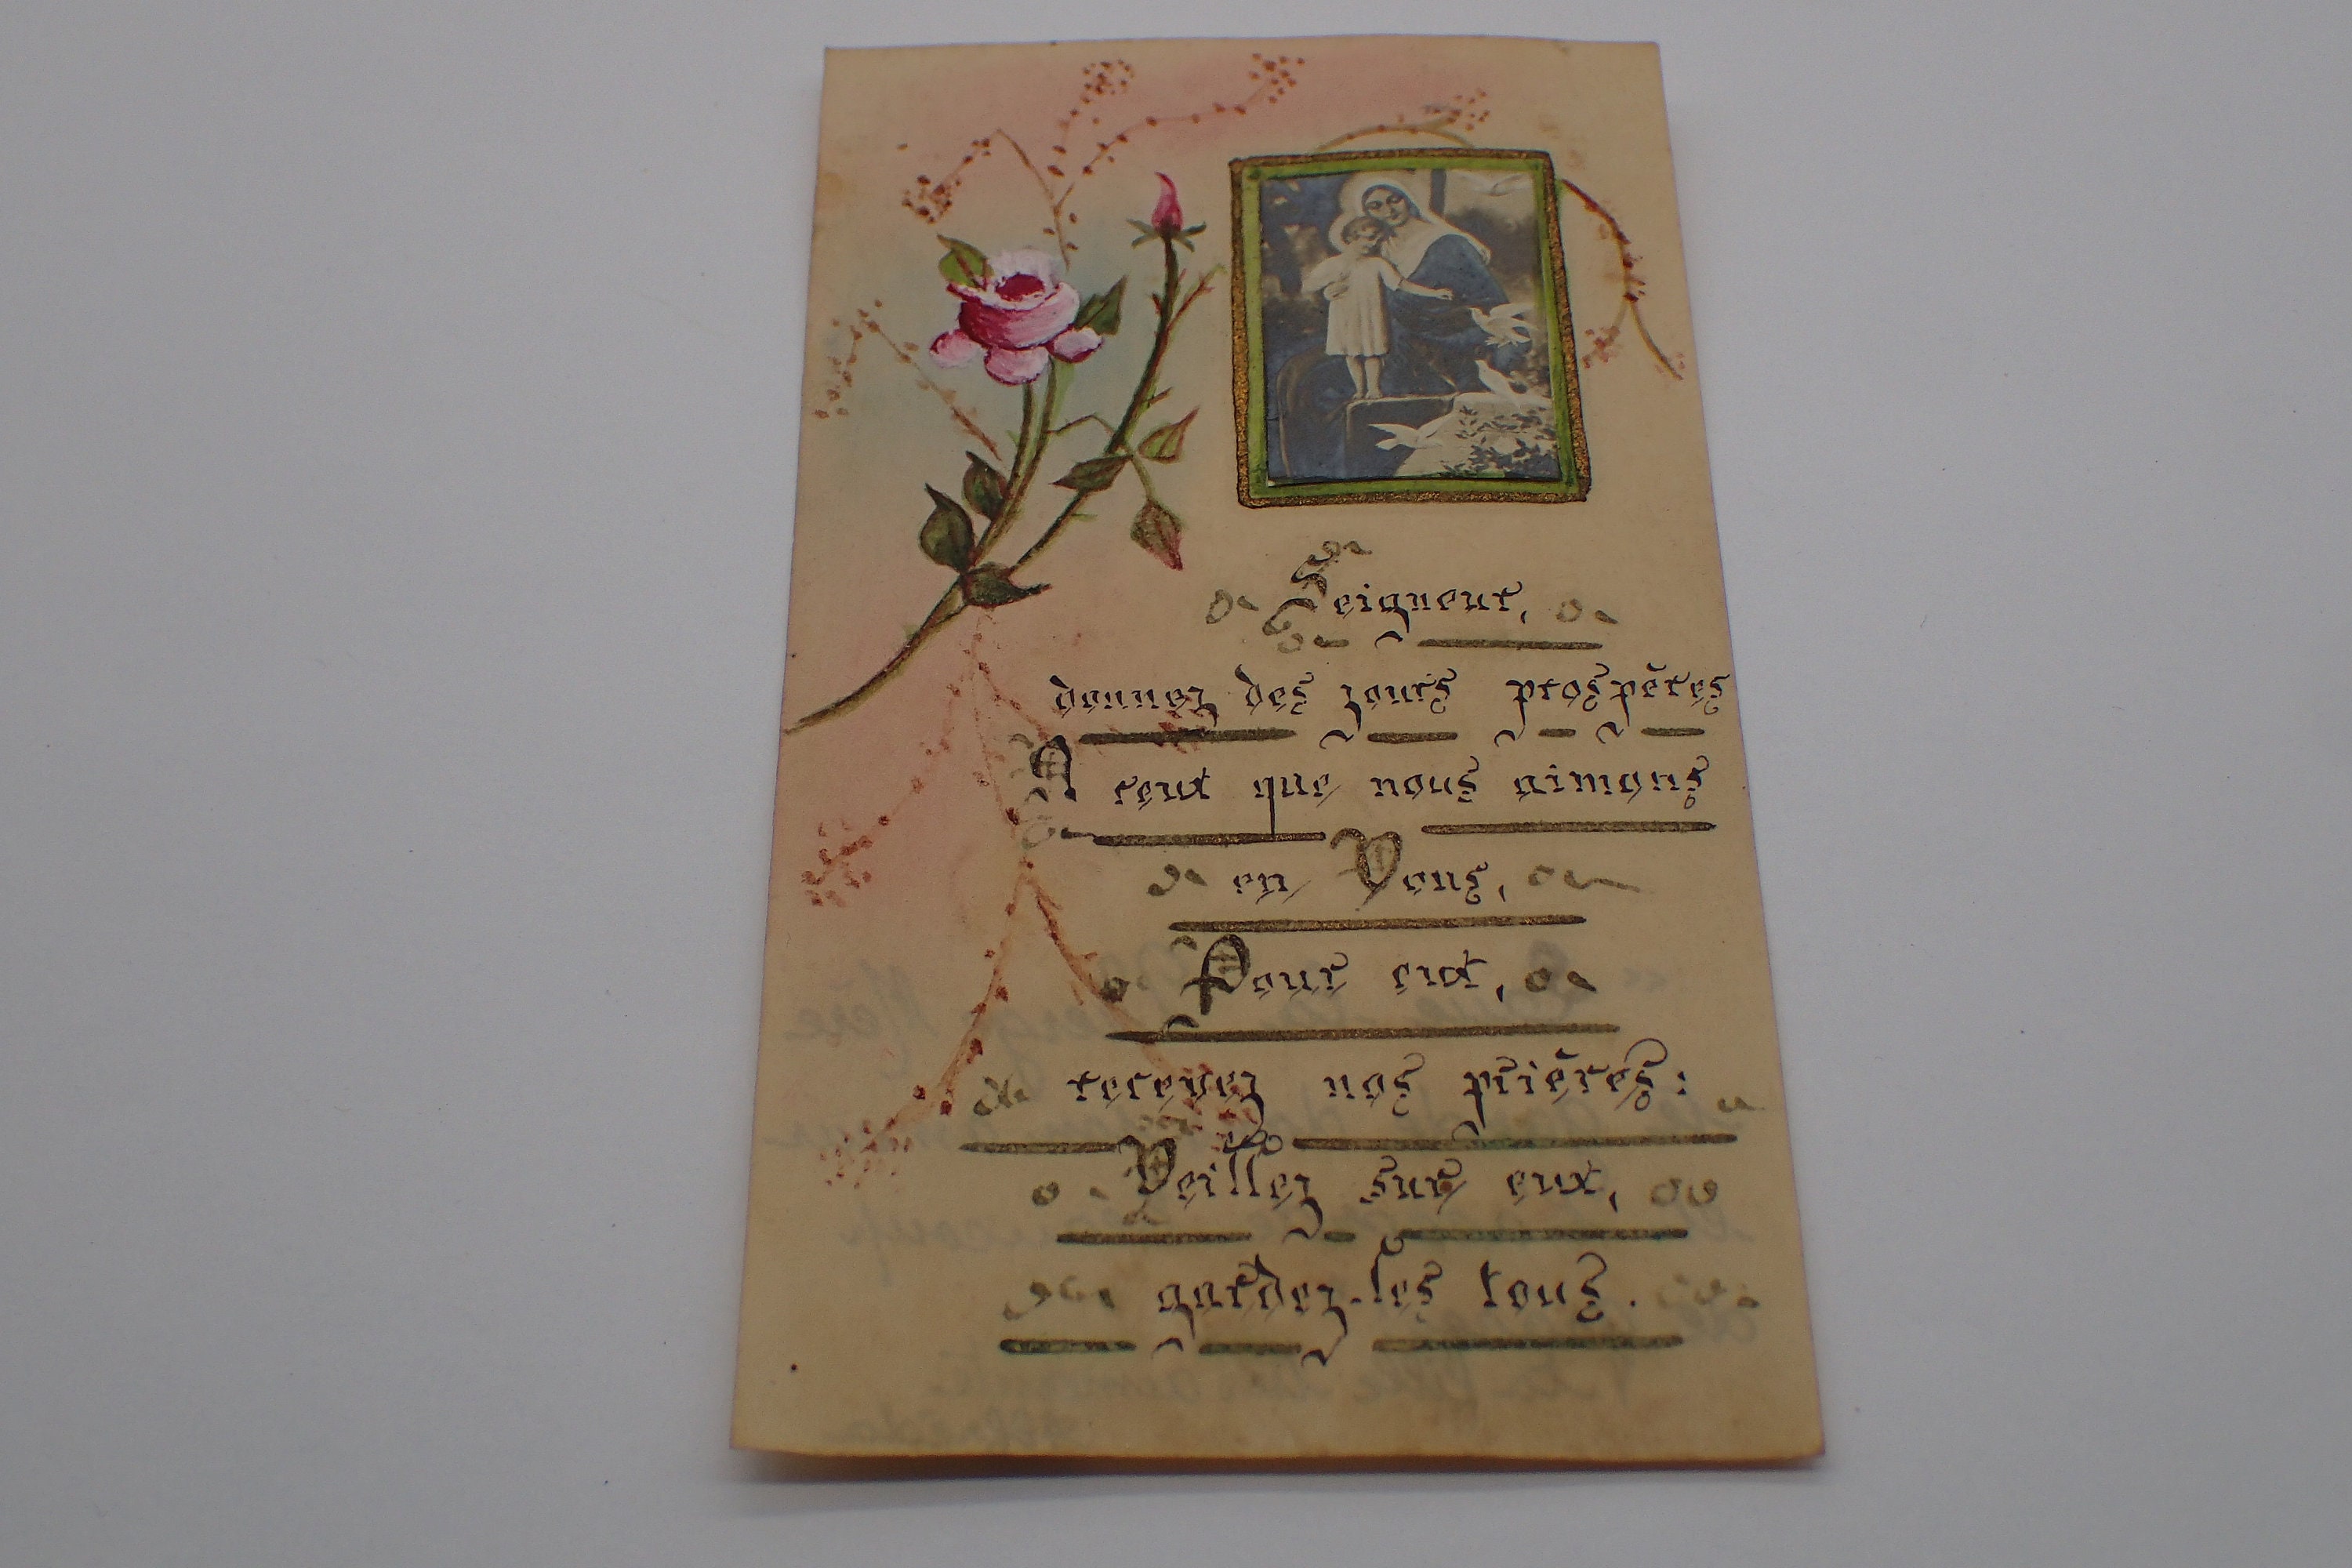 Seigneur,
donnez des jours prospères
A ceux que nous aimons
en Vous,
Pour eux,
recevez nos prières :
Veillez sur eux,
gardez-les tous.